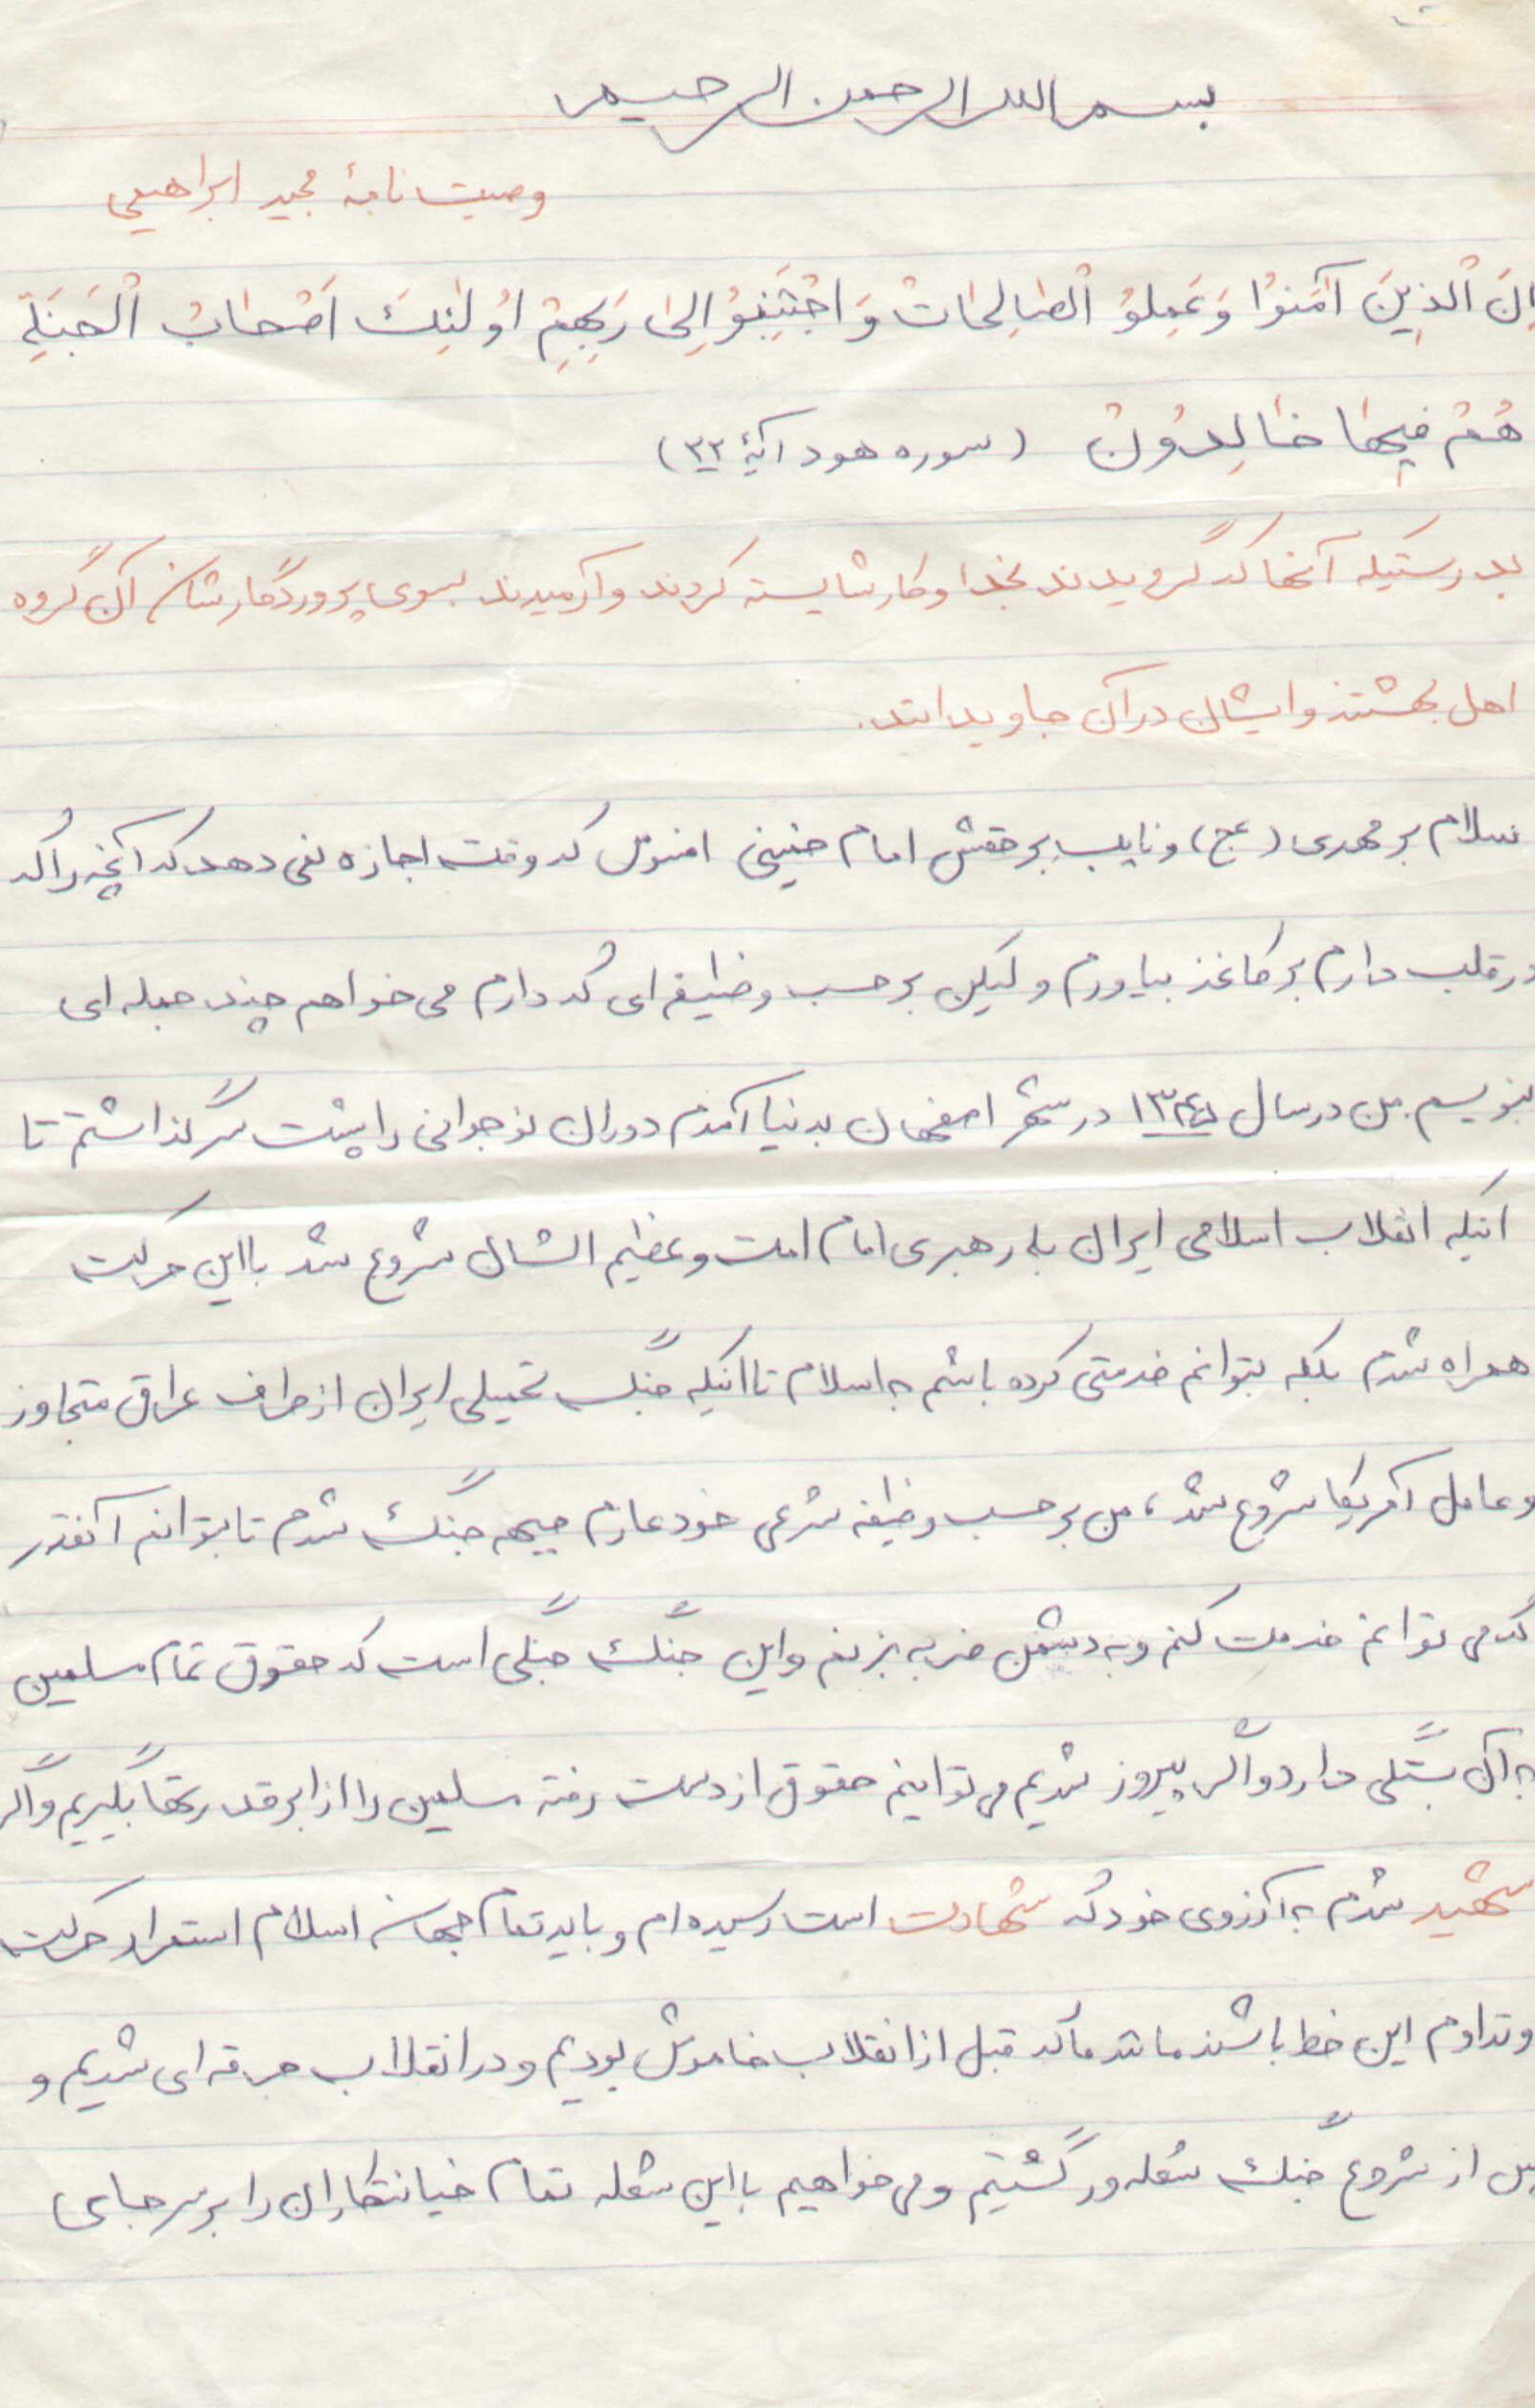 بسم الله الرحمن الرحیم
وصیت نامهٔ مجید ابراهیمی
اِنَ اْلذِینَ آمَنوُا وَ عَمِلوُ اْلصٰالِحٰاتْ وَ اخْبَتِوُ اِلیٰ رَبِهِمْ اوُلٰئِکَ اَصْحٰابُ اْلجَنَةِ
هُمْ فیِهٰا خٰالِدوُنْ (سوره هود آیهٔ ۲۳)
بدرستیکه آنها که گرویدند بخدا و کار شایسته کردند و آرمیدند بسوی پروردگارشان آن گروه
اهل بهشتند و ایشان در آن جاویدانند.
سلام بر مهدی (عج) و نایب بر حقش امام خمینی افسوس که وقت اجازه نمی دهد که آنچه را که
در قلب دارم بر کاغذ بیاورم ولیکن بر حسب وظیفه ای که دارم می خواهم چند جمله ای
بنویسم. من در سال در شهر اصفهان بدنیا آمدم دوران نوجوانی را پشت سر گذاشتم تا
اینکه انقلاب اسلامی ایران به رهبری امام امت و عظیم الشان شروع شد با این حرکت
همراه شدم بلکه بتوانم خدمتی کرده باشم به اسلام تا اینکه جنگ تحمیلی ایران از طرف عراق متجاوز
و عامل آمریکا شروع شد، من بر حسب وظیفه شرعی خود عازم جبهه جنگ شدم تا بتوانم آنقدر
که می توانم خدمت کنم و به دشمن ضربه بزنم و این جنگ جنگی است که حقوق تمام مسلمین
به آن بستگی دارد و اگر پیروز شدیم می توانیم حقوق از دست رفته مسلمین را از ابرقدرتها بگیریم و اگر
شهید شدم به آرزوی خود که شهادت است رسیده ام و باید تمام جهان اسلام استمرار حرکت
و تداوم این خط باشند مانند ما که قبل از انقلاب خاموش بودیم و در انقلاب جرقه ای شدیم و
پس از شروع جنگ شعله ور گشتیم و می خواهیم با این شعله تمام خیانتکاران را بر سر جای